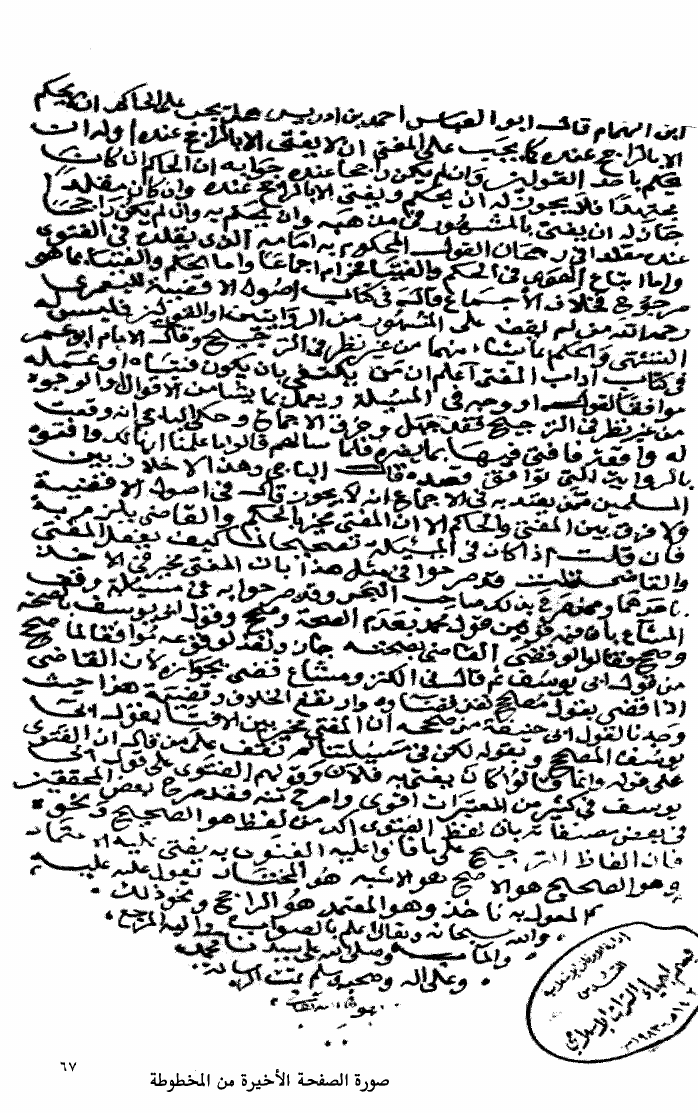 ابن الهمام قال ابو العباس احمد بن ادريس هل يجب على الحاكم ان لا يحكم
الا بالراجح عنده كما يجب على المفتي ان لا يفتي الا بالراجح عنده او له ان
يحكم باحد القولين وان لم يكن راجحا عنده جوابه ان الحاكم ان كان
مجتهدا فلا يجوز له ان يحكم ويفتي الا بالراجح عنده وان كان مقلدا
جاز له ان يفتي بالمشهور في مذهبه وان يحكم به وان لم يكن راجحا
عنده مقلدا في رجحان القول المحكوم به امامه الذي يقلده في الفتوى
واما اتباع الهوى في الحكم والفتيا فحرام اجماعا واما الحكم والفتيا بما هو
مرجوح فخلاف الاجماع قاله في كتاب اصول الاقضية لليعمري
رحمه الله من لم يقف على المشهور من الروايتين او القولين فليس له
التشهي والحكم بما شاء منهما من غير نظر في الترجيح وقال الامام ابو عمر
في كتاب اداب المفتي اعلم ان من يكتفي بان يكون فتياه او عمله
موافقا لقول او وجه في المسئلة ويعمل بما يشا من الاقوال او الوجوه
من غير نظر في الترجيح فقد جهل وخرق الاجماع وحكى الباجي انه وقعت
له واقعة فافتي فيها بما يضره فلما سالهم قالوا ما علمنا انها لك وافتوه
بالرواية التي توافق قصده قال الباجي وهذا لا خلاف بين
المسلمين ممن يعتد به في الاجماع انه لا يجوز قال في اصول الاقضية
ولا فرق بين المفتي والحاكم الا ان المفتي مخبر بالحكم والقاضي ملزم به
فان قلت اذا كان في المسئلة تصحيحان كيف يفعل المفتي
والقاضي قلت قد صرحوا في مثل هذا بان المفتي مخير في الاخذ
بالصحة
وصحح وقالوا لو قضى القاضي بصحته جاز
من قول ابي يوسف ثم قال في الكنز ومشاع قضي بجوازه لان القاضي
اذا قضى بقول مصحح نفذ قضاوه وارتفع الخلاف وقضية هذا حيث
وجدنا لقول ابي حنيفة من صححه ان المفتي مخير بين الافتا بقول ابي
يوسف المصحح وبقوله لكن في مسئلتنا لم نقف على من قال ان الفتوى
على قوله وانما قالوا كان يفتي به فلان وقولهم الفتوى على قول ابي
يوسف في كثير من المعتبرات اقوى وارجح منه فقد صرح بعض المحققين
في بعض مصنفاته بان لفظ الفتوى اكد من لفظ هو الصحيح ونحوه
فان الفاظ الترجيح على ما قالوا عليه الفتوى به يفتى عليه الاعتماد
وهو الصحيح هو الاصح هو الاشبه هو المختار
المعول به ناخذ وهو المعتمد هو الراجح ونحو ذلك
والله سبحانه وتعالى اعلم بالصواب واليه المرجع
والمآب وصلى الله على سيدنا محمد
وعلى اله وصحبه وسلم تمت الرسالة
قسم احياء التراث الاسلامي
القدس
صورة الصفحة الأخيرة من المخطوطة
٦٧